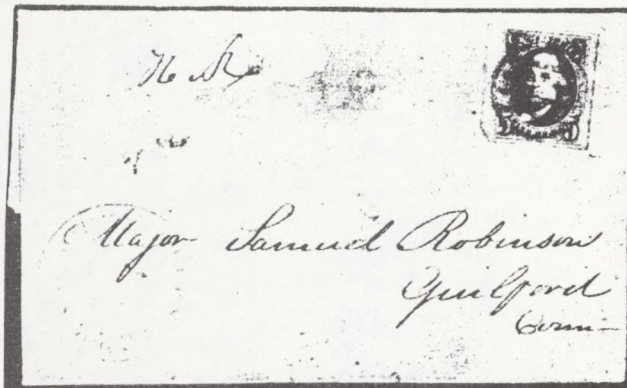 Major Samuel Robinson
Guilford
Conn